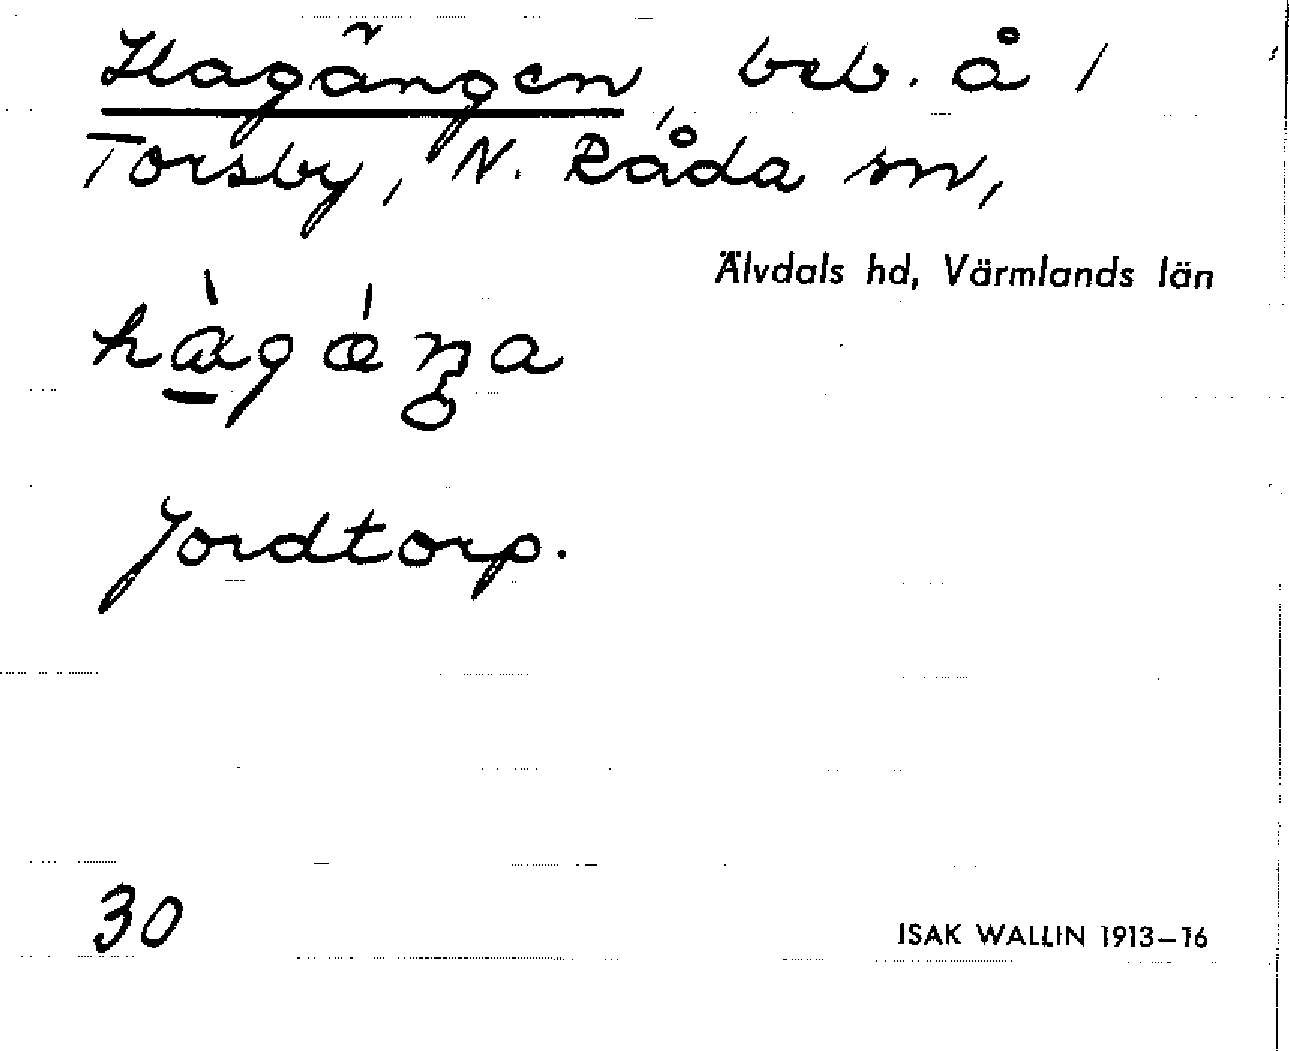 Hagängen, beb. å /
Torsby, N. Råda sn,
Älvdals hd, Värmlands län
Jordtorp.
30
ISAK WALLIN 1913–16